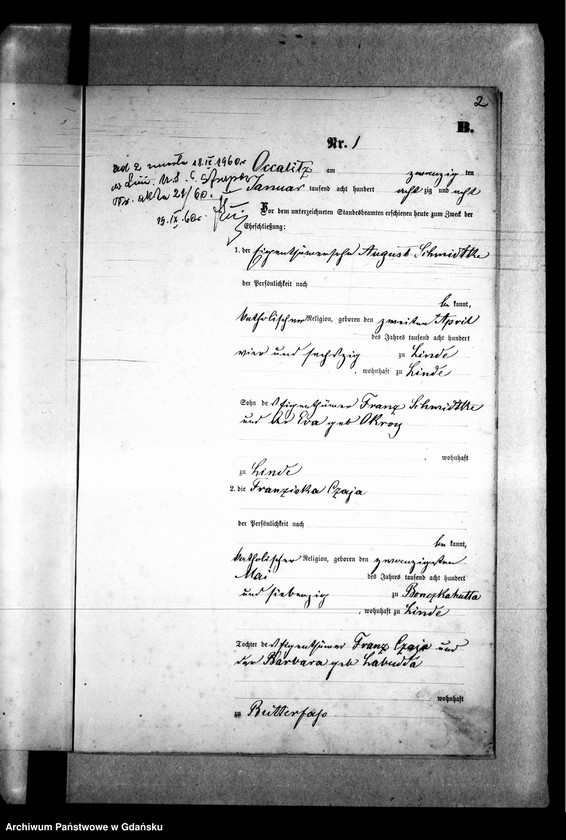 2
B.
Nr. 1
ad 2 zmarła 18.IV 1960r
Nr. aktu 21/60.
19.IV.60r.
Occalitz am zwanzigsten
Januar tausend acht hundert achtzig und acht
Vor dem unterzeichneten Standesbeamten erschienen heute zum Zweck der
Eheschließung:
1. der Eigenthümersohn August Schmidtke
der Persönlichkeit nach
be kannt,
katholischer Religion, geboren den zweiten April
des Jahres tausend acht hundert
vier und sechszig zu Linde
, wohnhaft zu Linde
Sohn des Eigenthümer Franz Schmidtke
und der Eva geb Okroy
wohnhaft
zu Linde
2. die Franziska Czaja
der Persönlichkeit nach
be kannt,
katholischer Religion, geboren den zwanzigsten
Mai des Jahres tausend acht hundert
und siebenzig zu Bonczkahutta
, wohnhaft zu Linde
Tochter des Eigenthümer Franz Czaja und
der Barbara geb Labudda
wohnhaft
zu Butterfaß
Archiwum Państwowe w Gdańsku